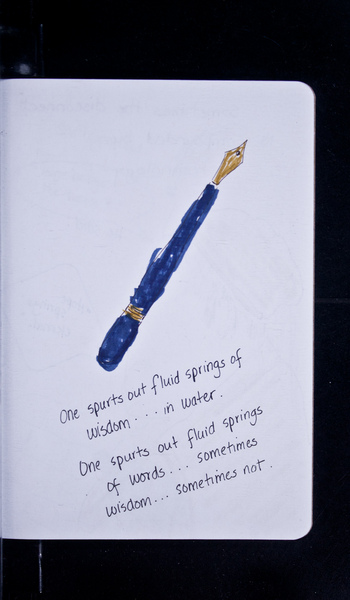 One spurts out fluid springs of
wisdom... in water.
One spurts out fluid springs
of words... sometimes
wisdom... sometimes not.